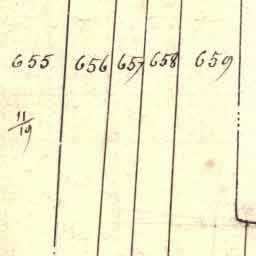 655 656 657 658 659
11/19